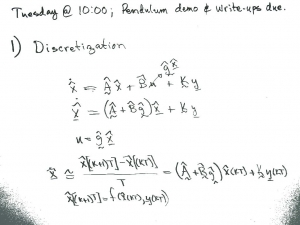 Tuesday @ 10:00; Pendulum demo & write-ups due.
1) Discretization
ẋ̂ = Â x̂ + B̂ u + K y
ĝ x̂
ẋ̂ = (Â + B̂ ĝ) x̂ + K y
u = ĝ x̂
ẋ̂ ≅ (x̂[(k+1)T] - x̂(kT)) / T = (Â + B̂ ĝ) x̂(kT) + K y(kT)
x̂[(k+1)T] = f(x̂(kT), y(kT))